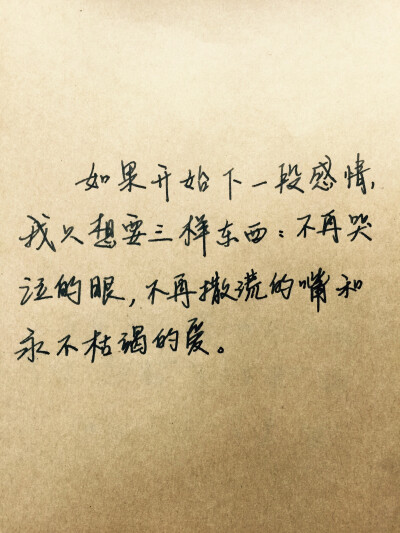 如果开始下一段感情，
我只想要三样东西：不再哭
泣的眼，不再撒谎的嘴和
永不枯竭的爱。